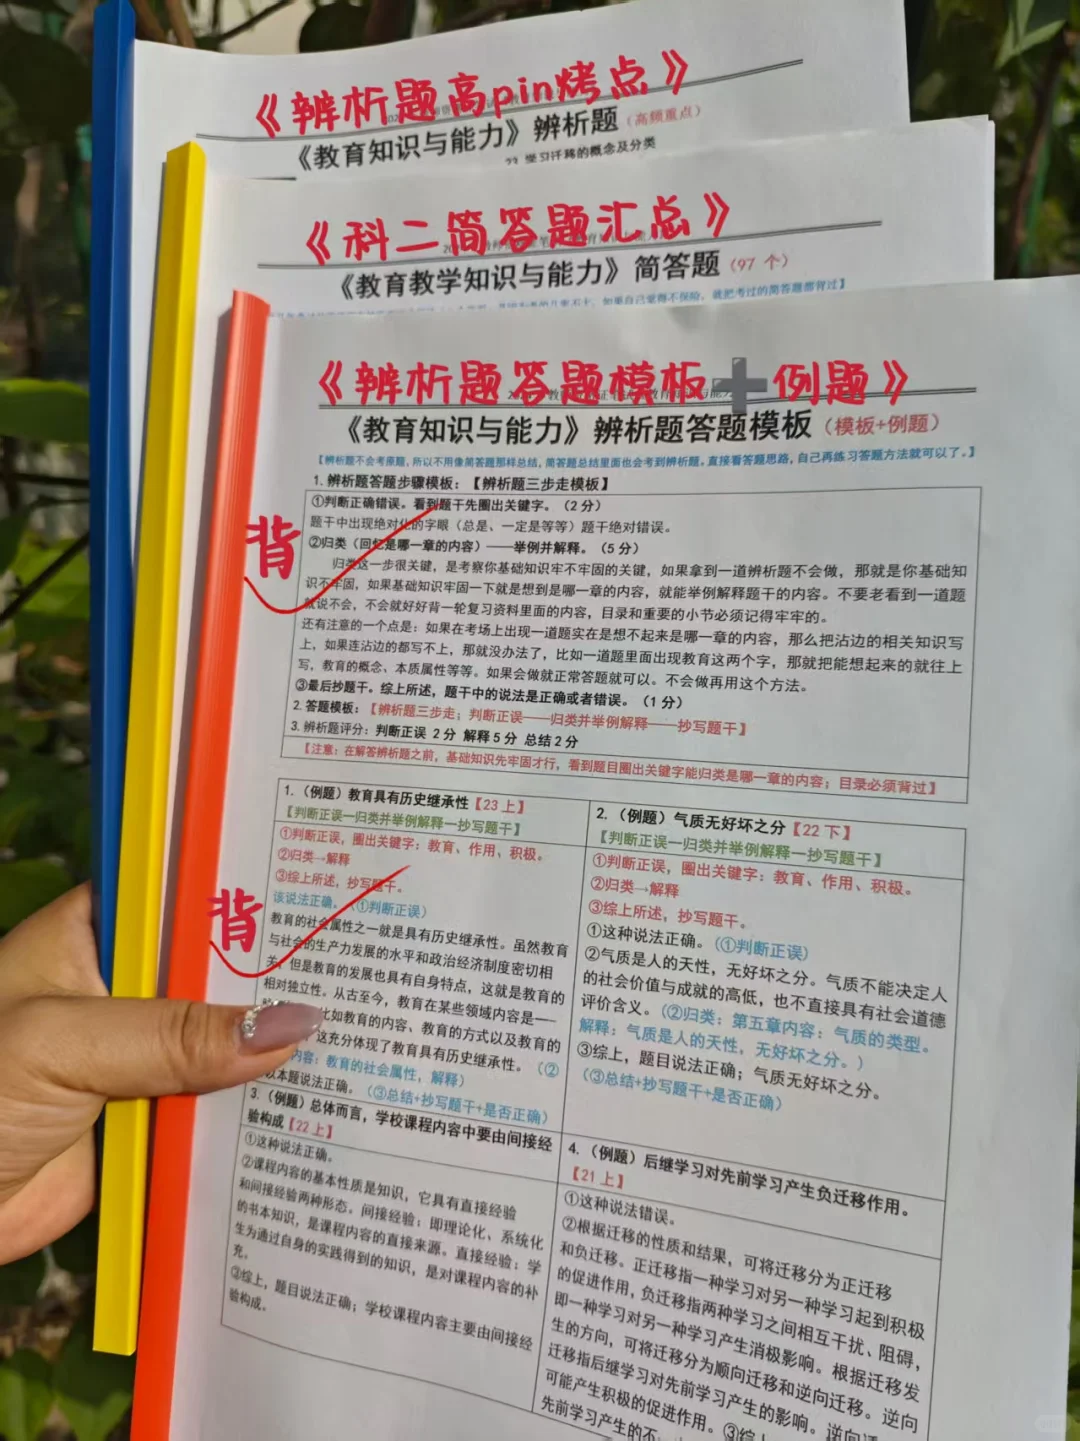 《辨析题高pin烤点》
《教育知识与能力》辨析题（高频重点）
23.学习迁移的概念及分类
《科二简答题汇总》
《教育教学知识与能力》简答题（97 个）
如果自己觉得不保险，就把考过的简答题都背过】
《辨析题答题模板➕例题》
《教育知识与能力》辨析题答题模板（模板+例题）
【辨析题不会考原题，所以不用像简答题那样总结，简答题总结里面也会考到辨析题。直接看答题思路，自己再练习答题方法就可以了。】
1.辨析题答题步骤模板：【辨析题三步走模板】
①判断正确错误。看到题干先圈出关键字。（2 分）
题干中出现绝对化的字眼（总是、一定是等等）题干绝对错误。
背
②归类（回忆是哪一章的内容）——举例并解释。（5 分）
归类这一步很关键，是考察你基础知识牢不牢固的关键，如果拿到一道辨析题不会做，那就是你基础知
识不牢固，如果基础知识牢固一下就是想到是哪一章的内容，就能举例解释题干的内容。不要老看到一道题
就说不会，不会就好好背一轮复习资料里面的内容，目录和重要的小节必须记得牢牢的。
还有注意的一个点是：如果在考场上出现一道题实在是想不起来是哪一章的内容，那么把沾边的相关知识写
上，如果连沾边的都写不上，那就没办法了，比如一道题里面出现教育这两个字，那就把能想起来的就往上
写，教育的概念、本质属性等等。如果会做就正常答题就可以。不会做再用这个方法。
③最后抄题干。综上所述，题干中的说法是正确或者错误。（1 分）
2.答题模板：【辨析题三步走；判断正误——归类并举例解释——抄写题干】
3.辨析题评分：判断正误 2 分 解释 5 分 总结 2 分
【注意：在解答辨析题之前，基础知识先牢固才行，看到题目圈出关键字能归类是哪一章的内容；目录必须背过】
1.（例题）教育具有历史继承性【23 上】
【判断正误—归类并举例解释—抄写题干】
①判断正误，圈出关键字：教育、作用、积极。
②归类→解释
③综上所述，抄写题干。
该说法正确。（①判断正误）
背
教育的社会属性之一就是具有历史继承性。虽然教育
与社会的生产力发展的水平和政治经济制度密切相
关，但是教育的发展也具有自身特点，这就是教育的
相对独立性。从古至今，教育在某些领域内容是一
比如教育的内容、教育的方式以及教育的
这充分体现了教育具有历史继承性。（②
内容：教育的社会属性，解释）
以本题说法正确。（③总结+抄写题干+是否正确）
2.（例题）气质无好坏之分【22 下】
【判断正误—归类并举例解释—抄写题干】
①判断正误，圈出关键字：教育、作用、积极。
②归类→解释
③综上所述，抄写题干。
①这种说法正确。（①判断正误）
②气质是人的天性，无好坏之分。气质不能决定人
的社会价值与成就的高低，也不直接具有社会道德
评价含义。（②归类：第五章内容：气质的类型。
解释：气质是人的天性，无好坏之分。）
③综上，题目说法正确；气质无好坏之分。
（③总结+抄写题干+是否正确）
3.（例题）总体而言，学校课程内容中要由间接经
验构成【22 上】
①这种说法正确。
②课程内容的基本性质是知识，它具有直接经验
和间接经验两种形态。间接经验：即理论化、系统化
的书本知识，是课程内容的直接来源。直接经验：学
生为通过自身的实践得到的知识，是对课程内容的补
充。
③综上，题目说法正确；学校课程内容主要由间接经
验构成。
4.（例题）后继学习对先前学习产生负迁移作用。
【21 上】
①这种说法错误。
②根据迁移的性质和结果，可将迁移分为正迁移
和负迁移。正迁移指一种学习对另一种学习起到积极
的促进作用，负迁移指两种学习之间相互干扰、阻碍，
即一种学习对另一种学习产生消极影响。根据迁移发
生的方向，可将迁移分为顺向迁移和逆向迁移。逆向
迁移指后继学习对先前学习产生的影响。逆向
可能产生积极的促进作用。③综
先前学习产生的不